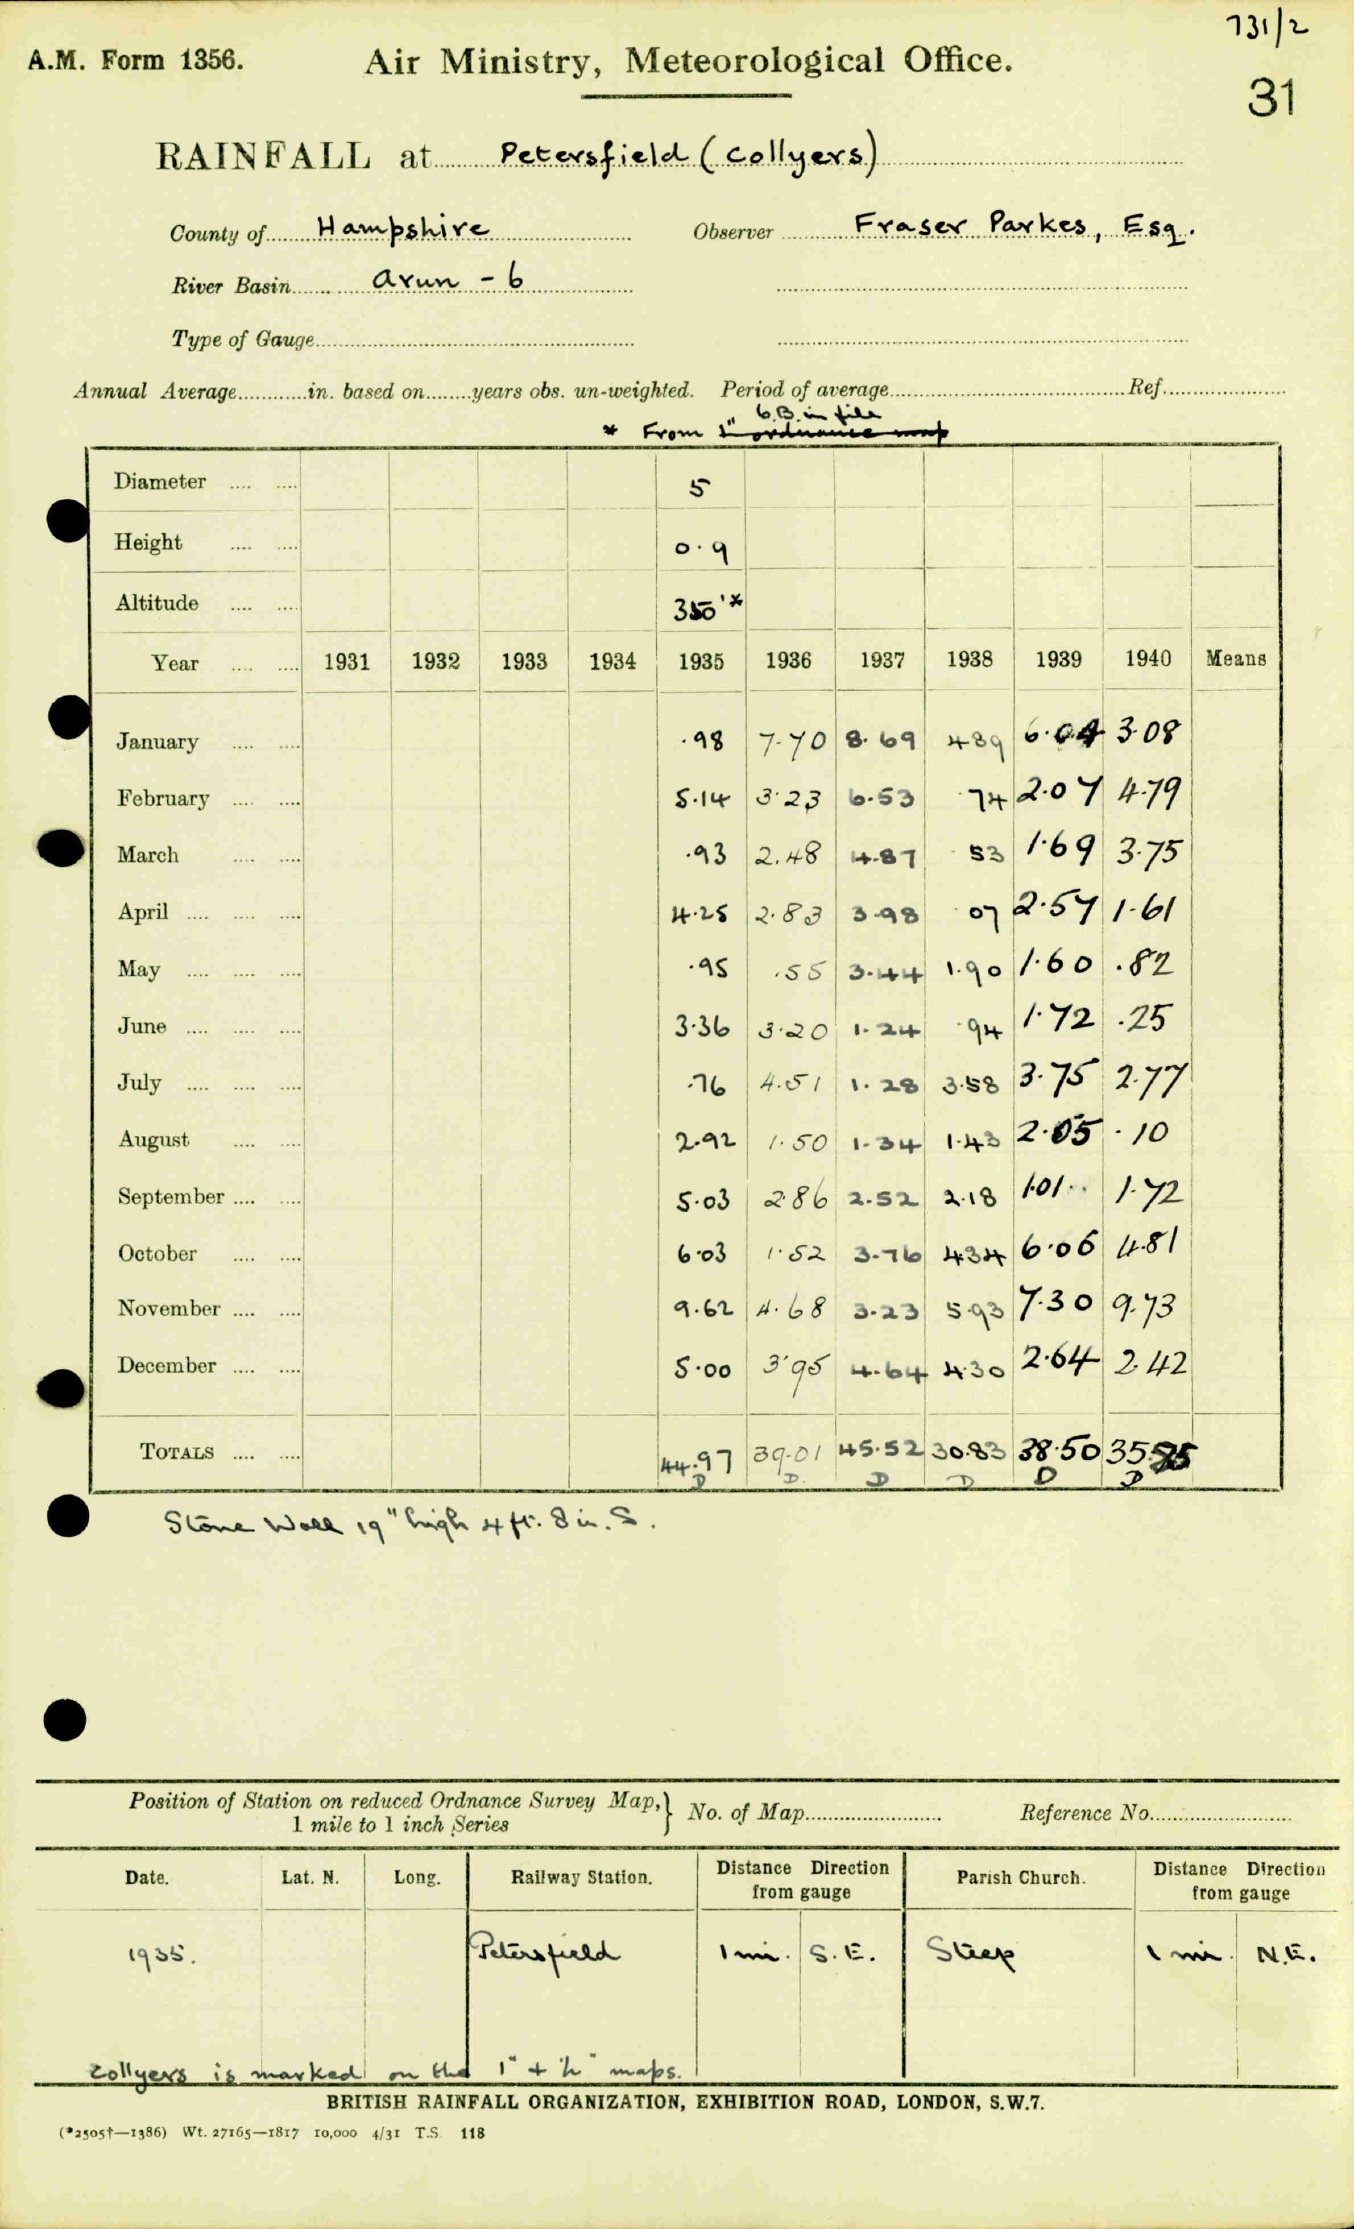 731/2
A.M. Form 1356. Air Ministry, Meteorological Office.
31
RAINFALL at Petersfield (Collyers)
County of Hampshire Observer Fraser Parkes, Esq.
River Basin Arun - 6
Type of Gauge
Annual Average in. based on years obs. un-weighted. Period of average Ref.
6.B. in file
* From 1" ordnance map
Diameter 5
Height 0.9
Altitude 350'*
Year 1931 1932 1933 1934 1935 1936 1937 1938 1939 1940 Means
January .98 7.70 8.69 4.89 6.04 3.08
February 5.14 3.23 6.53 .74 2.07 4.79
March .93 2.48 4.87 .53 1.69 3.75
April 4.25 2.83 3.98 .07 2.57 1.61
May .95 .55 3.44 1.90 1.60 .82
June 3.36 3.20 1.24 .94 1.72 .25
July .76 4.51 1.28 3.58 3.75 2.77
August 2.92 1.50 1.34 1.43 2.05 .10
September 5.03 2.86 2.52 2.18 1.01 1.72
October 6.03 1.52 3.76 4.34 6.06 4.81
November 9.62 4.68 3.23 5.93 7.30 9.73
December 5.00 3.95 4.64 4.30 2.64 2.42
TOTALS 44.97 39.01 45.52 30.83 38.50 35.85
D D D D D D
Stone Wall 19" high 4 ft. 8 in. S.
Position of Station on reduced Ordnance Survey Map,} No. of Map Reference No.
1 mile to 1 inch Series
Date. Lat. N. Long. Railway Station. Distance Direction from gauge Parish Church. Distance Direction from gauge
1935. Petersfield 1 mi. S.E. Steep 1 mi. N.E.
Collyers is marked on the 1" + ½" maps.
BRITISH RAINFALL ORGANIZATION, EXHIBITION ROAD, LONDON, S.W.7.
(*2505†—1386) Wt. 27165—1817 10,000 4/31 T.S. 118